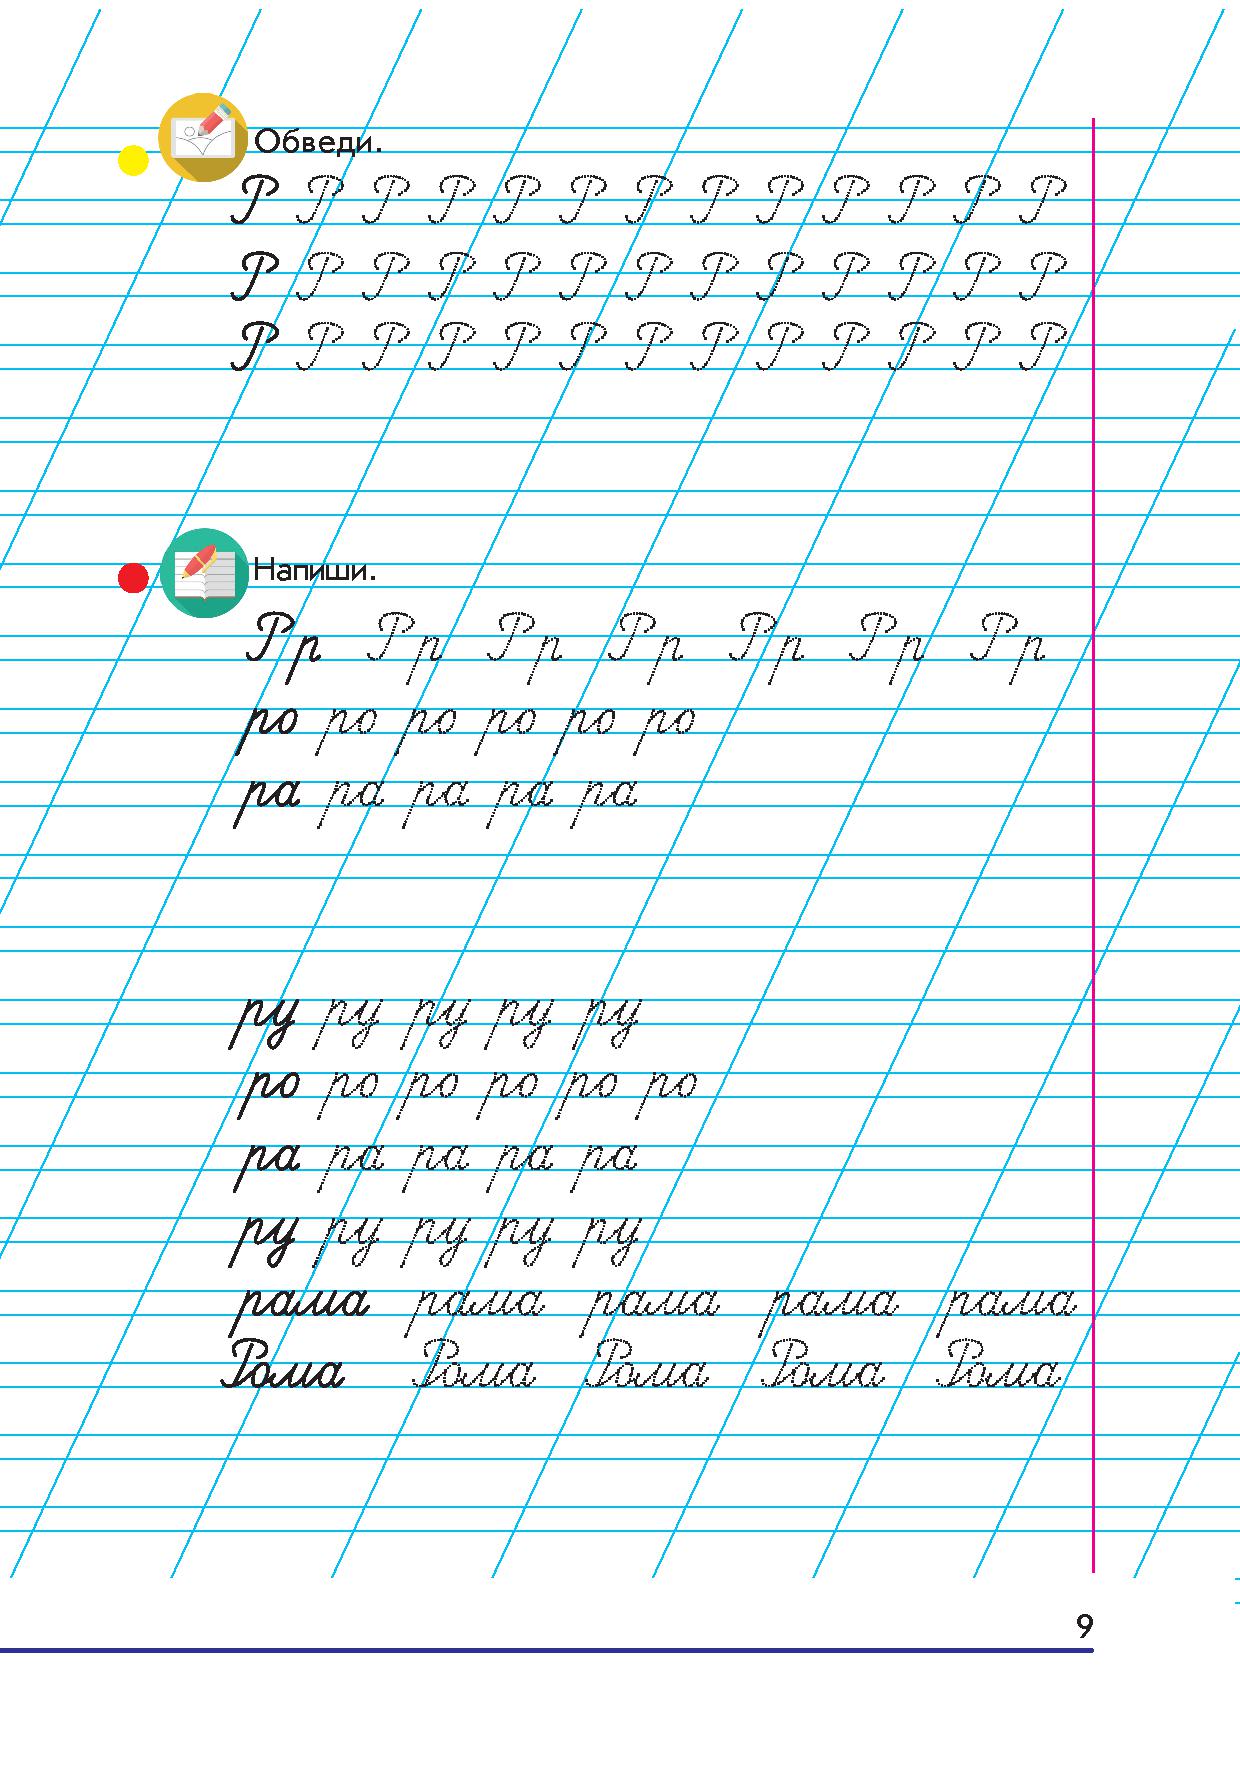 Обведи.
Р Р Р Р Р Р Р Р Р Р Р Р Р
Р Р Р Р Р Р Р Р Р Р Р Р Р
Р Р Р Р Р Р Р Р Р Р Р Р Р
Напиши.
Рр Рр Рр Рр Рр Рр Рр
ро ро ро ро ро ро
ра ра ра ра ра
ру ру ру ру ру
ро ро ро ро ро ро
ра ра ра ра ра
ру ру ру ру ру
рама рама рама рама рама
Рома Рома Рома Рома Рома
9